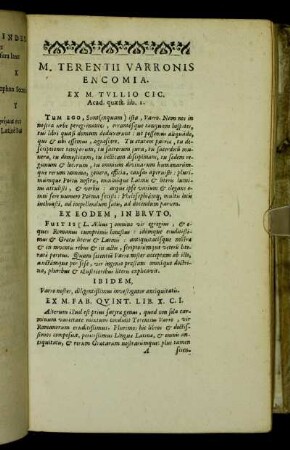 M. TERENTII VARRONIS
ENCOMIA.
EX M. TVLLIO CIC.
Acad. quæst. lib. 1.
TVM EGO, Sunt (inquam) ista, Varro. Nam nos in
nostra urbe peregrinantes, errantesque tanquam hospites,
tui libri quasi domum deduxerunt: ut possemus aliquando,
qui & ubi essemus, agnoscere. Tu ætatem patriæ, tu de-
scriptiones temporum, tu sacrorum jura, tu sacerdotum mu-
nera, tu domesticam, tu bellicam disciplinam, tu sedem re-
gionum & locorum, tu omnium divinarum humanarumque
rerum nomina, genera, officia, causas aperuisti: pluri-
mumque Poetis nostris, omninoque Latinis & literis lumi-
nis attulisti, & verbis: atque ipse varium & elegans o-
mni fere numero Poema fecisti: Philosophiamque multis locis
inchoasti, ad impellendum satis, ad docendum parum.
EX EODEM, IN BRVTO.
FVIT IS [L. Ælius] omnino vir egregius, & e-
ques Romanus cumprimis honestus: idemque eruditissi-
mus & Græcis literis & Latinis: antiquitatisque nostræ &
in inventis rebus & in actis, scriptorumque veterum lite-
rate peritus. Quam scientiam Varro noster acceptam ab illo,
auctamque per sese, vir ingenio præstans omnique doctri-
na, pluribus & illustrioribus literis explicavit.
IBIDEM,
Varro noster, diligentissimus investigator antiquitatis.
EX M. FAB. QVINT. LIB. X. C. I.
Alterum illud est prius satyræ genus, quod non sola car-
minum varietate mixtum condidit Terentius Varro, vir
Romanorum eruditissimus. Plurimos hic libros & doctissi-
mos composuit, peritissimus Linguæ Latinæ, & omnis an-
tiquitatis, & rerum Græcarum nostrarumque: plus tamen
A